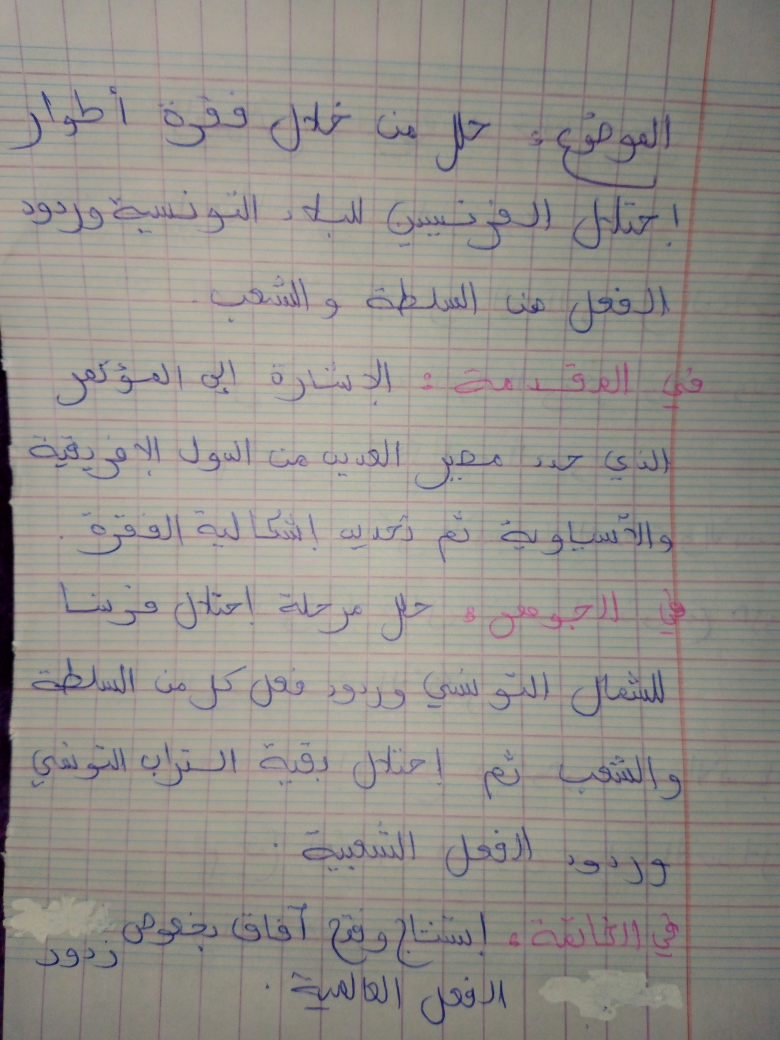 الموضوع : حلل من خلال فقرة أطوار
إحتلال الفرنسيين للبلاد التونسية وردود
الفعل من السلطة والشعب .
في المقدمة : الإشارة إلى المؤتمر
الذي حدد مصير العديد من الدول الإفريقية
والآسياوية ثم تحديد إشكالية الفقرة .
في الجوهر : حلل مرحلة إحتلال فرنسا
للشمال التونسي وردود فعل كل من السلطة
والشعب ثم إحتلال بقية التراب التونسي
وردود الفعل الشعبية .
في الخاتمة : إستنتاج وفتح آفاق بخصوص ردود
الفعل العالمية .